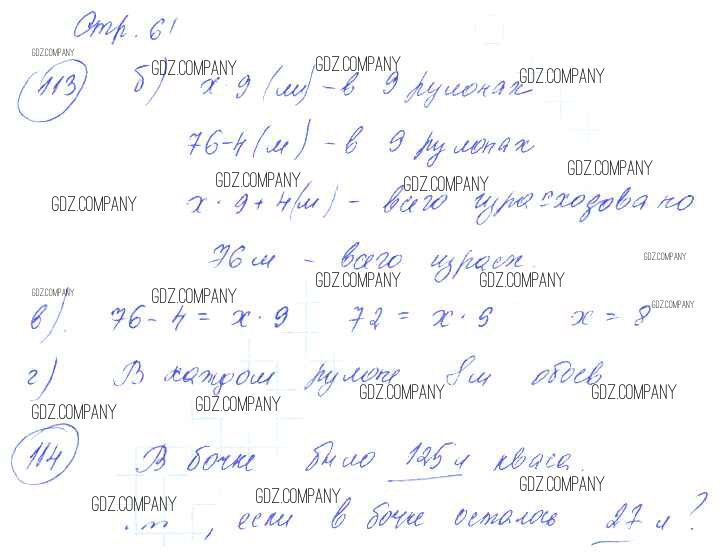 Стр. 61
GDZ.COMPANY
113 б) x · 9 (м) - в 9 рулонах
GDZ.COMPANY GDZ.COMPANY GDZ.COMPANY
76-4 (м) - в 9 рулонах
GDZ.COMPANY GDZ.COMPANY GDZ.COMPANY
GDZ.COMPANY x · 9 + 4 (м) - всего израсходовано
76 м - всего израсх.
GDZ.COMPANY GDZ.COMPANY GDZ.COMPANY
GDZ.COMPANY GDZ.COMPANY GDZ.COMPANY
в). 76 - 4 = x · 9 72 = x · 9 x = 8
г) В каждом рулоне 8м обоев
GDZ.COMPANY GDZ.COMPANY GDZ.COMPANY GDZ.COMPANY
114 В бочке было 125 л кваса.
GDZ.COMPANY GDZ.COMPANY GDZ.COMPANY
, если в бочке осталось 27 л?